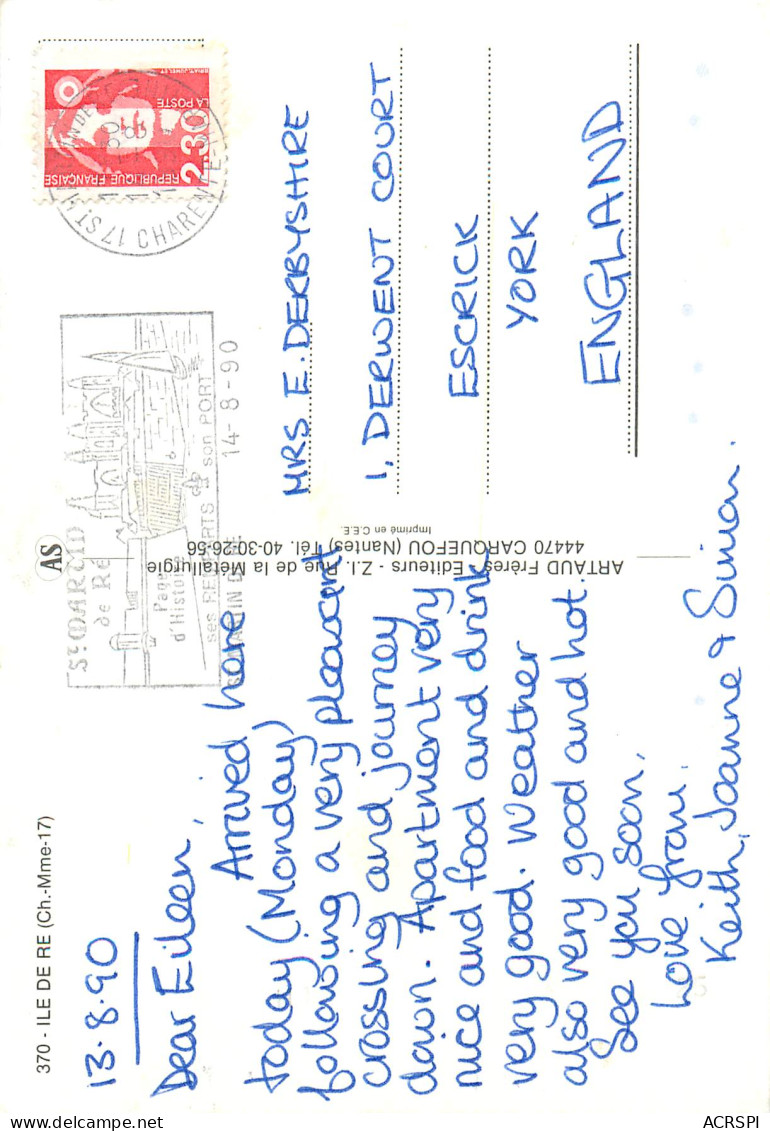 370 - ILE DE RE (Ch.-Mme-17)
13.8.90
Dear Eileen,
Arrived here
today (Monday)
following a very pleasant
crossing and journey
down. Apartment very
nice and food and drink
very good. Weather
also very good and hot.
See you soon,
Love from,
Keith, Joanne & Simon.
AS
ARTAUD Frères, Editeurs - Z.I. Rue de la Métallurgie
44470 CARQUEFOU (Nantes) Tél. 40-30-26-56
Imprimé en C.E.E.
St MARTIN
de Ré
Page
d'Histoire
ses REMPARTS son PORT
14-8-90
17 ST M
CHARENTE
2,30
REPUBLIQUE FRANÇAISE
LA POSTE
BRIAT-JUMELET
MRS E. DERBYSHIRE
1, DERWENT COURT
ESCRICK
YORK
ENGLAND
ACRSPI